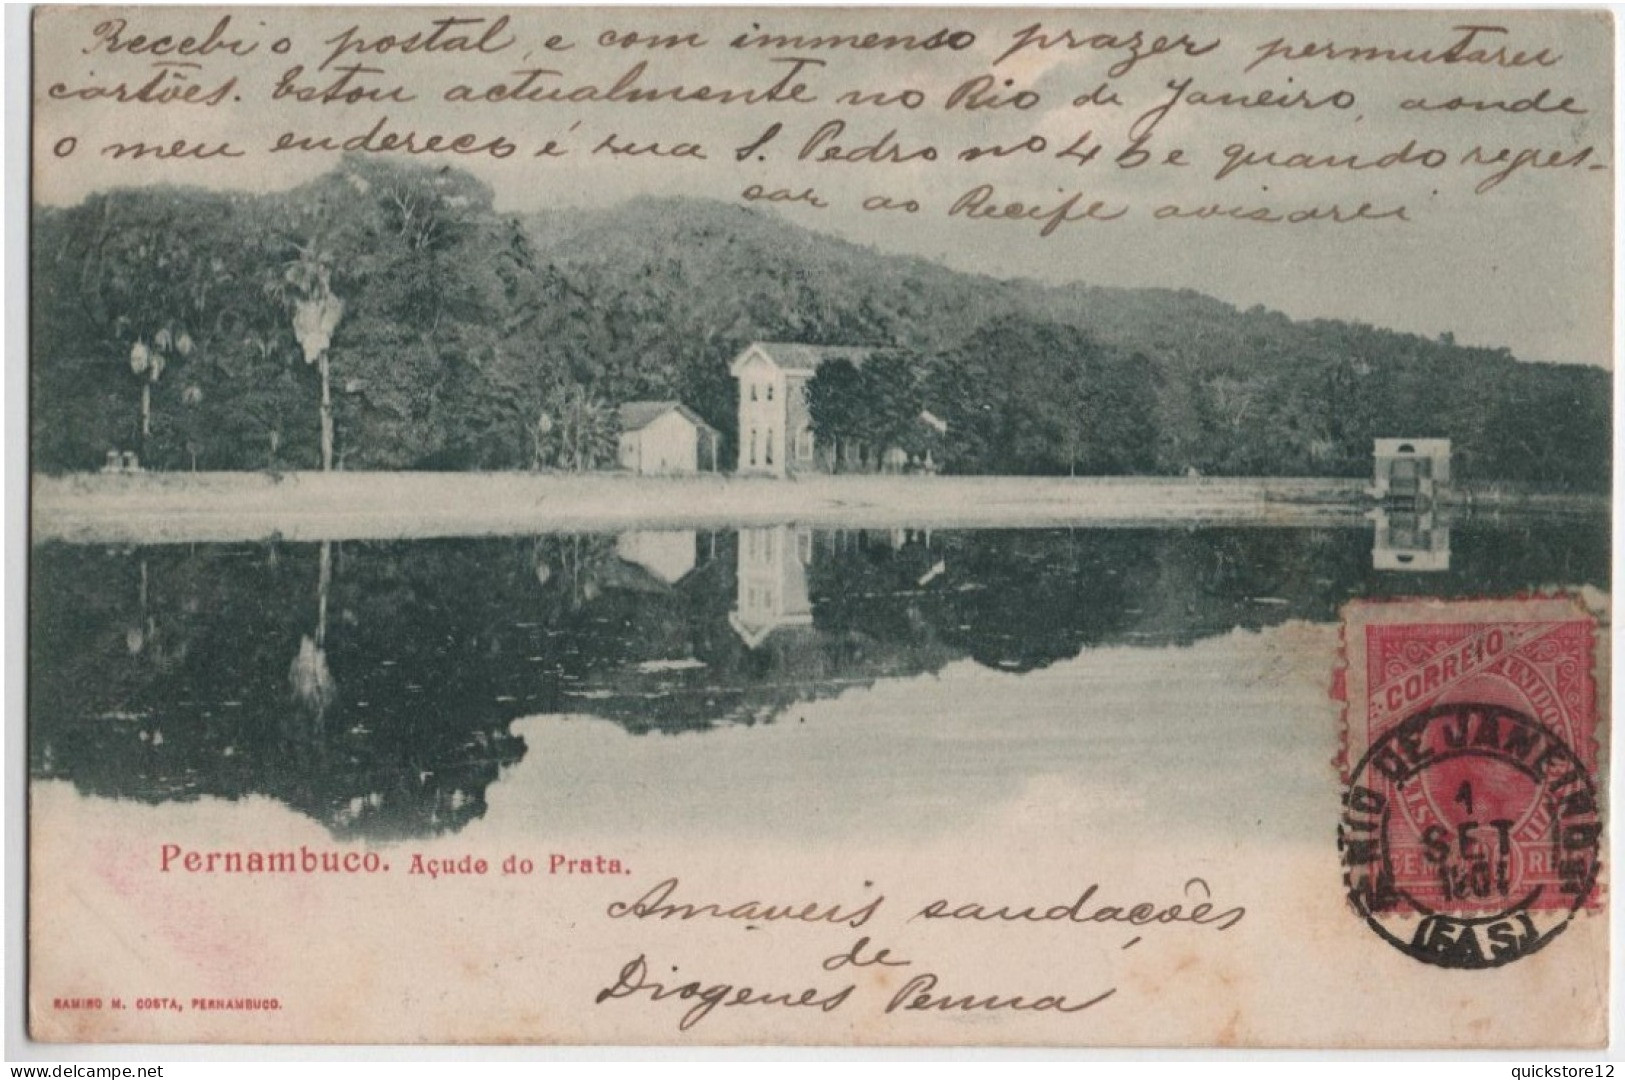 Recebi o postal, e com immenso prazer permutarei
cartões. Estou actualmente no Rio de Janeiro, aonde
o meu endereço é rua S. Pedro nº 46 e quando regres-
sar ao Recife avisarei
CORREIO
UNIDOS
RIO DE JANEIRO
1
SET
(5ª S)
Pernambuco. Açude do Prata.
Amaveis saudações
de
Diogenes Penna
RAMIRO M. COSTA, PERNAMBUCO.
delcampe.net
quickstore12